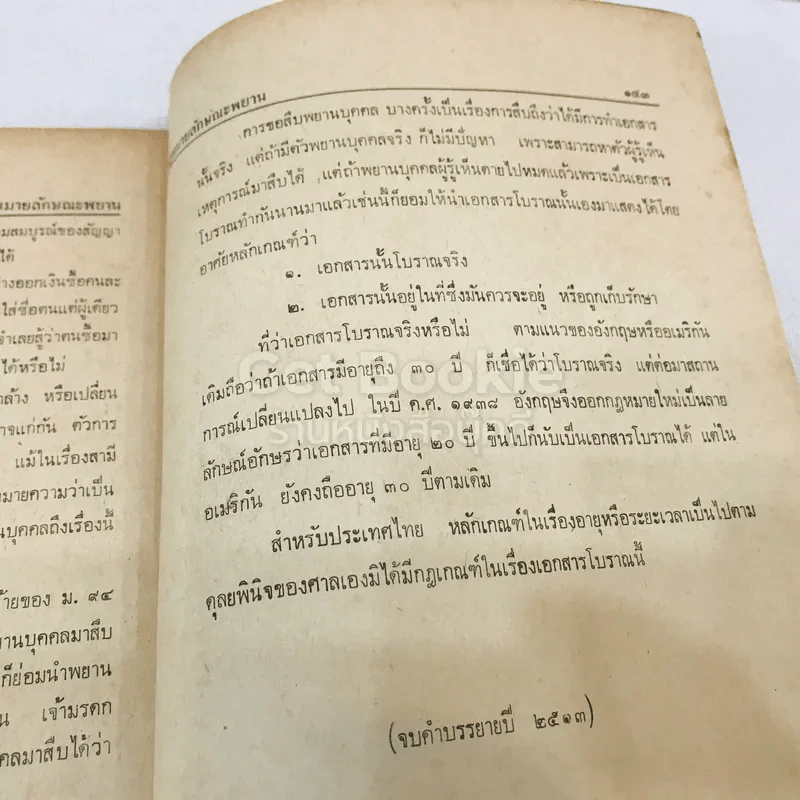 มายลักษณะพยาน
มสมบูรณ์ของสัญญา
ได้
างออกเงินซื้อคนละ
ใส่ชื่อคนแต่ผู้เดียว
จำเลยสู้ว่าตนซื้อมา
ได้หรือไม่
ล้าง หรือเปลี่ยน
าจแก่กัน ตัวการ
แม้ในเรื่องสามี
หมายความว่าเป็น
นบุคคลถึงเรื่องนี้
ท้ายของ ม. ๙๔
ยานบุคคลมาสืบ
ก็ย่อมนำพยาน
น เจ้ามรดก
คลมาสืบได้ว่า
มายลักษณะพยาน ๑๔๓
การขอสืบพยานบุคคล บางครั้งเป็นเรื่องการสืบถึงว่าได้มีการทำเอกสาร
นั้นจริง แต่ถ้ามีตัวพยานบุคคลจริง ก็ไม่มีปัญหา เพราะสามารถหาตัวผู้รู้เห็น
เหตุการณ์มาสืบได้ แต่ถ้าพยานบุคคลผู้รู้เห็นตายไปหมดแล้วเพราะเป็นเอกสาร
โบราณทำกันนานมาแล้วเช่นนี้ก็ยอมให้นำเอกสารโบราณนั้นเองมาแสดงได้โดย
อาศัยหลักเกณฑ์ว่า
๑. เอกสารนั้นโบราณจริง
๒. เอกสารนั้นอยู่ในที่ซึ่งมันควรจะอยู่ หรือถูกเก็บรักษา
ที่ว่าเอกสารโบราณจริงหรือไม่ ตามแนวของอังกฤษหรืออเมริกัน
เดิมถือว่าถ้าเอกสารมีอายุถึง ๓๐ ปี ก็เชื่อได้ว่าโบราณจริง แต่ต่อมาสถาน
การณ์เปลี่ยนแปลงไป ในปี ค.ศ. ๑๙๓๘ อังกฤษจึงออกกฎหมายใหม่เป็นลาย
ลักษณ์อักษรว่าเอกสารที่มีอายุ ๒๐ ปี ขึ้นไปก็นับเป็นเอกสารโบราณได้ แต่ใน
อเมริกัน ยังคงถืออายุ ๓๐ ปีตามเดิม
สำหรับประเทศไทย หลักเกณฑ์ในเรื่องอายุหรือระยะเวลาเป็นไปตาม
ดุลยพินิจของศาลเองมิได้มีกฎเกณฑ์ในเรื่องเอกสารโบราณนี้
(จบคำบรรยายปี ๒๕๑๓)
Get Bookie